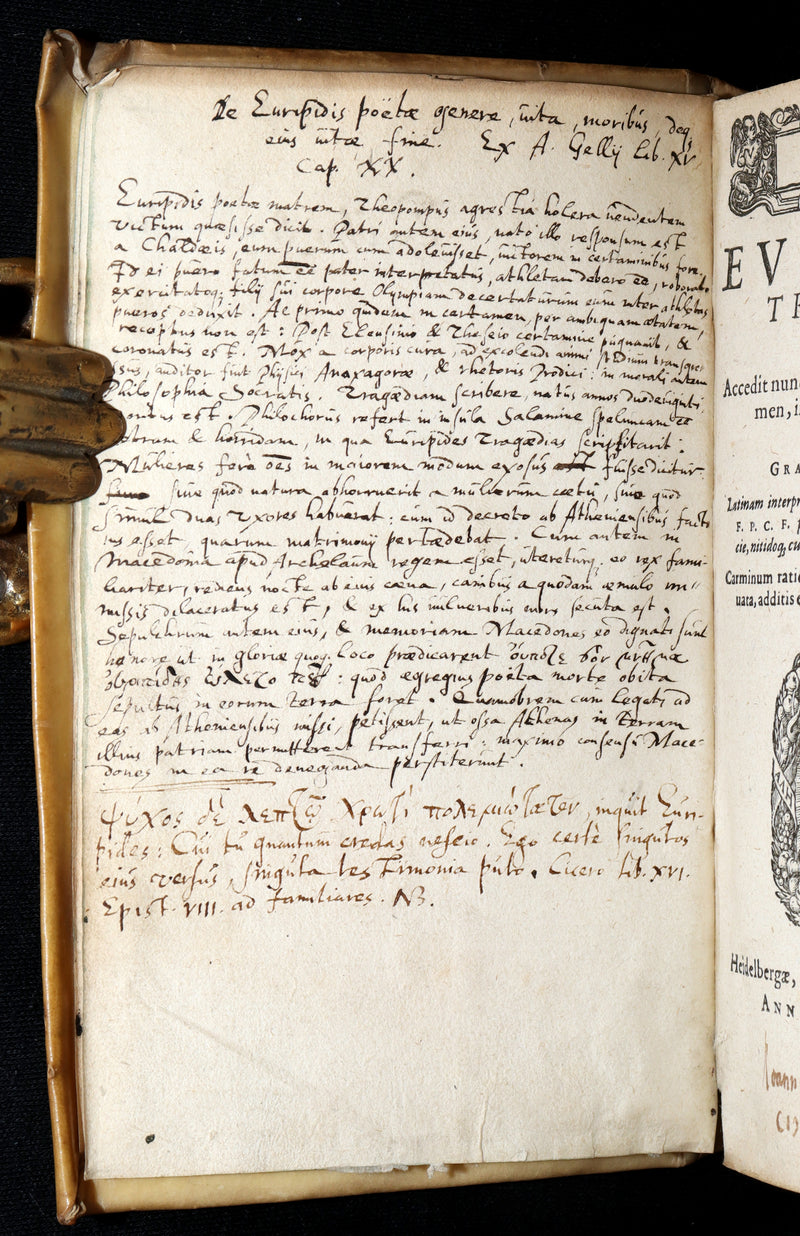 De Euripidis poëtæ genere, uita, moribus, deq;
eius uitæ fine. Ex A. Gellij Lib. XV.
Cap. XX.
Euripidis poetæ matrem, Theopompus agrestia holera uendentem
victum quæsisse dicit. Patri autem eius, nato illo responsum est
a Chaldæis, eum puerum cum adoleuisset, uictorem in certaminibus fore.
Id ei puero fatum eē pater interpretatus, athletam debere eē, roborato
exercitatoq; filij sui corpore Olympiam decertaturum eum inter athletas
pueros deduxit. Ac primo quidem in certamen, per ambiguam ætatem,
receptus non est: Post Eleusinio & Theseio certamine pugnauit, &
coronatus est. Mox a corporis cura, ad excolendi animi studium transgres-
sus, auditor fuit Physici Anaxagoræ, & rhetoris Prodici: in morali autem
Philosophia Socratis. Tragœdiam scribere, natus annos duodeuiginti,
adortus est. Philochorus refert in insula Salamine speluncam eē
tetram & horridam, in qua Euripides Tragædias scriptitarit:
Mulieres ferè oēs in maiorem modum exosus fuisse dicitur
siue quod natura abhorruerit a mulierum cœtu, siue quod
simul duas uxores habuerat: cum id decreto ab Atheniensibus fact-
um esset, quarum matrimonij pertædebat. Cum autem in
Macedonia apud Archelaum regem esset, utereturq; eo rex fami-
liariter, rediens nocte ab eius cæna, canibus a quodam æmulo im-
missis dilaceratus est, & ex his uulneribus mors secuta est.
Sepulchrum autem eius, & memoriam Macedones eo dignati sunt
honore ut in gloriæ quoq; loco prædicarent
: quòd egregius poëta morte obita
sepultus in eorum terra foret. Quamobrem cum legati ad
eas ab Atheniensibus missi, petissent, ut ossa Athenas in terram
illius patriam permitterent transferri: maximo consensu Mace-
dones in ea re deneganda perstiterunt.
Ψύχος δὲ λεπτῷ χρωτὶ πολεμιώτατον, inquit Euri-
pides: Cui tu quantum credas nescio. Ego certè singulos
eius versus, singula testimonia puto. Cicero lib. XVI.
Epist. VIII. ad familiares. NB.
EV
T
Accedit nun
men, i
GRA
Latinam interpr
F. P. C. F.
cie, nitidoq, cu
Carminum rati
uata, additis e
Heidelbergæ,
ANN
Ioann
(19